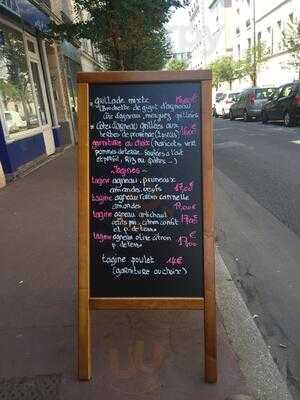 Grillade mixte 18,50€
(Brochette de gigot d'agneau
côte d'agneau, merguez, grillées)
* Côtes d'agneau grillées aux
herbes de provence (2 pièces) 16,00€
garniture au choix (haricots vert
pommes de terre sautées à l'ail
et persil, Riz ou frites...)
~ Tagines ~
tagine agneau, pruneaux
amandes, oeufs 17,00€
tagine agneau raisin cannelle
amandes 17,00€
tagine agneau artichaut
petits pois citron confit 17,00€
et p. de terre
tagine agneau olive citron €
p. de terre 17,00
tagine poulet 14€
(garniture au choix)